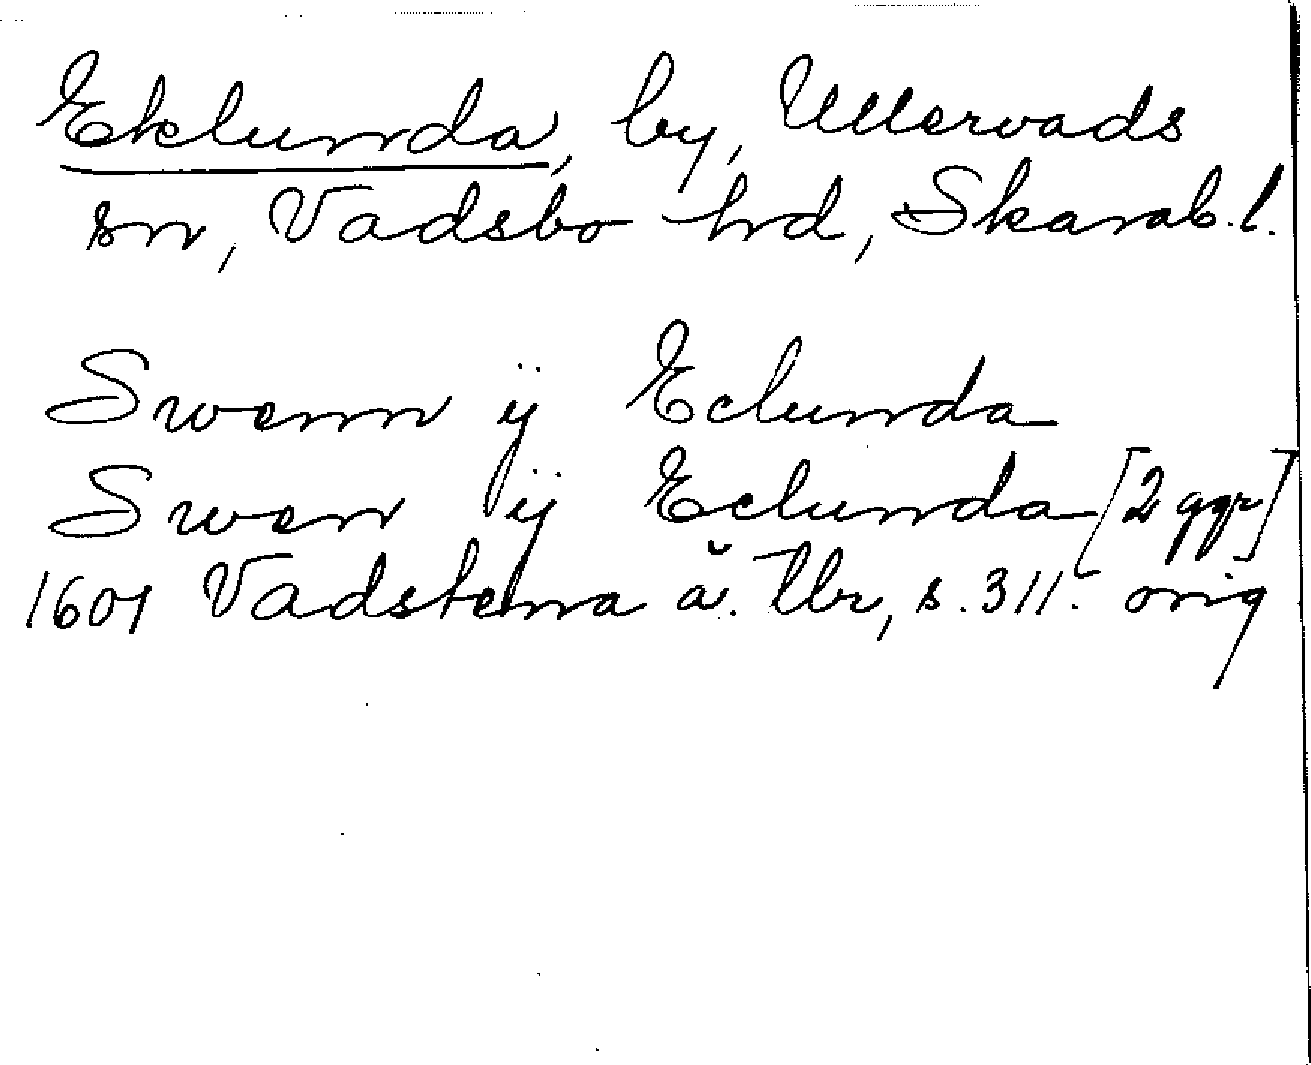 Eklunda, by, Ullervads
sn, Vadsbo hrd, Skarab. l.
Swenn ÿ Eclunda
Swen ÿ Eclunda [2 ggr]
1601 Vadstena ä. tbr, s. 311. orig